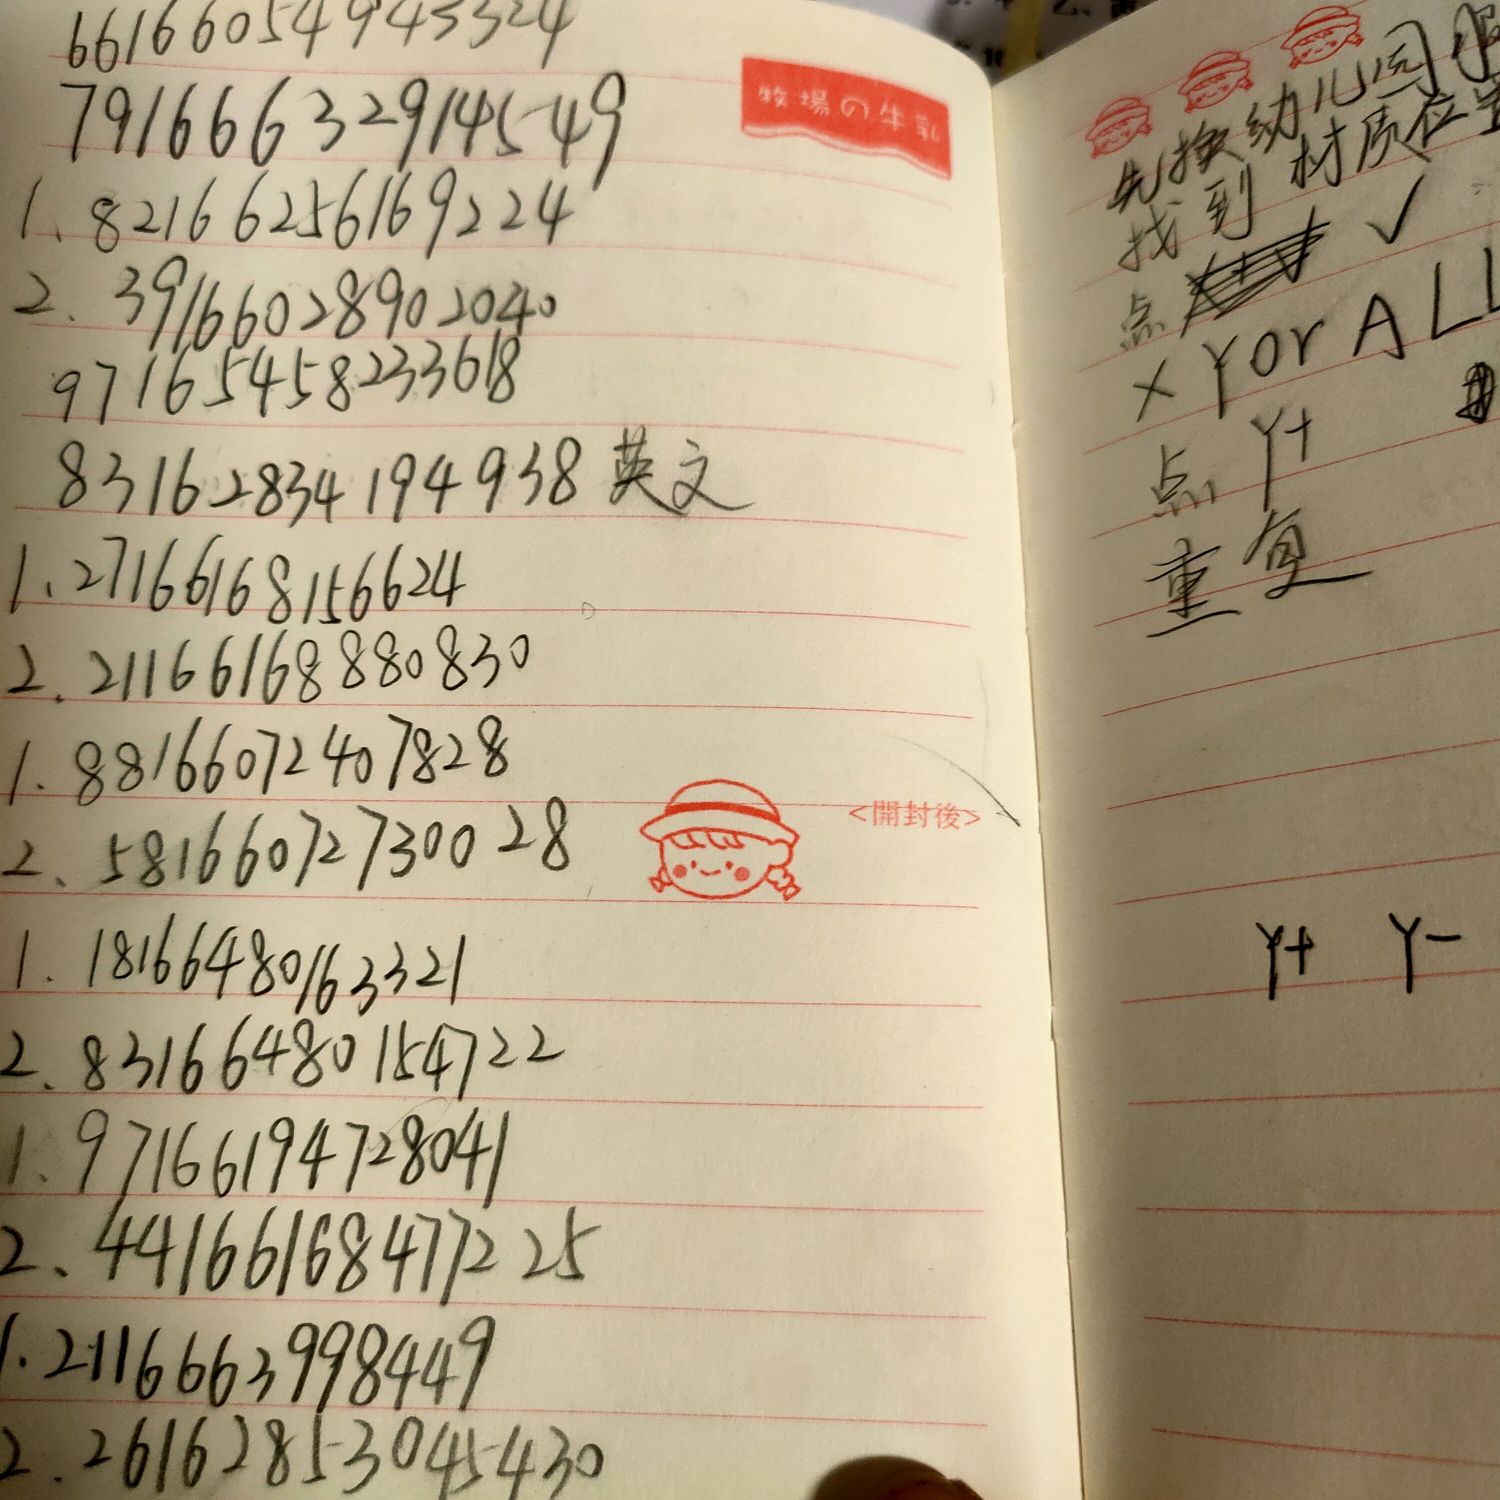 66166054943324
7916663291 4549
1. 82166256169224
2. 39166028902040
97165458233618
83162834194938 英文
1. 27166168156624
2. 21166168880830
1. 88166072407828
2. 58166072730028
1. 18166480163321
2. 83166480154722
1. 97166194728041
2. 44166168477225
1. 2116663998449
2. 26162853045430
牧場の牛乳
<開封後>
先换幼儿园
找到 材质位置
点 ✓
X Y or ALL
点 Y+
重复
Y+ Y-